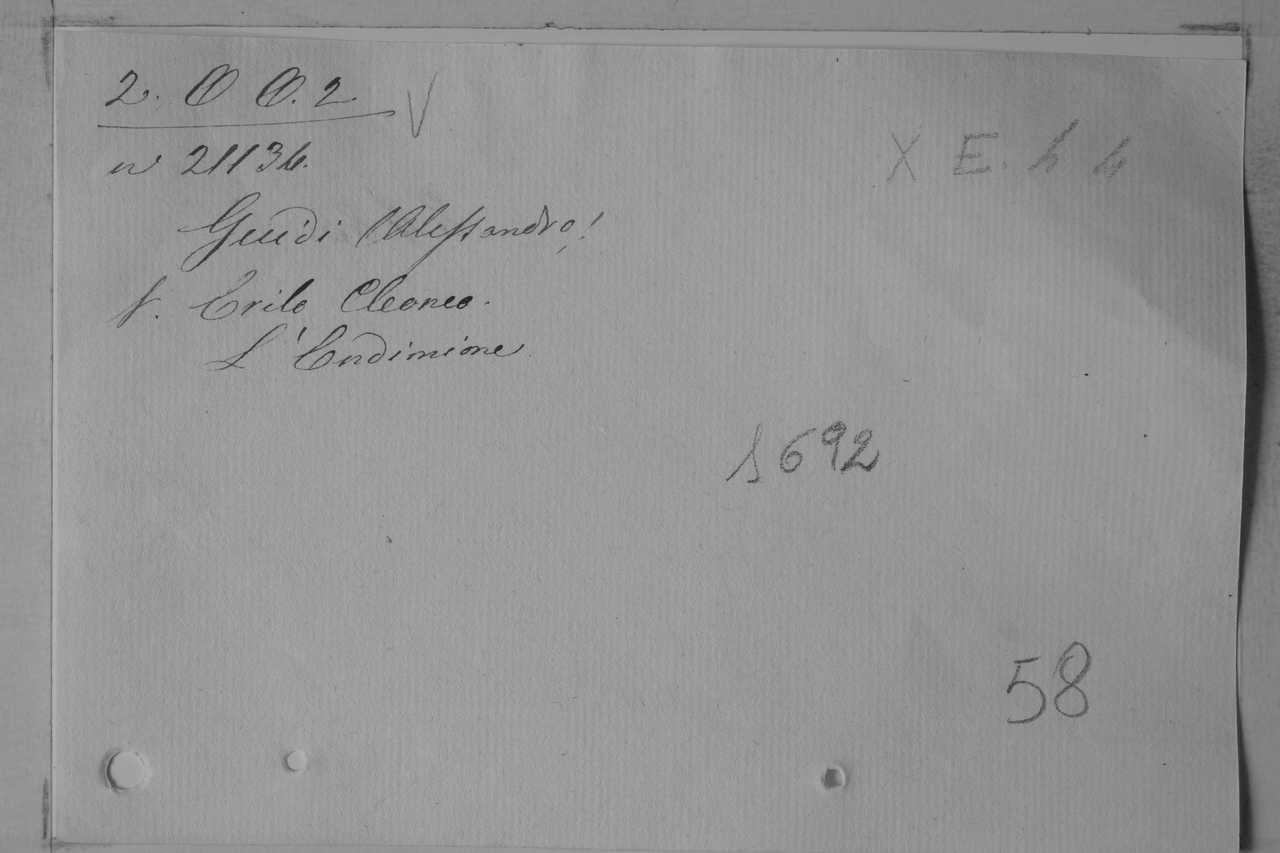 2. O O. 2 V
n 21136.
X E. h 4
Guidi (Alessandro)
V. Erilo Cleoneo.
L'Endimione
1692
58